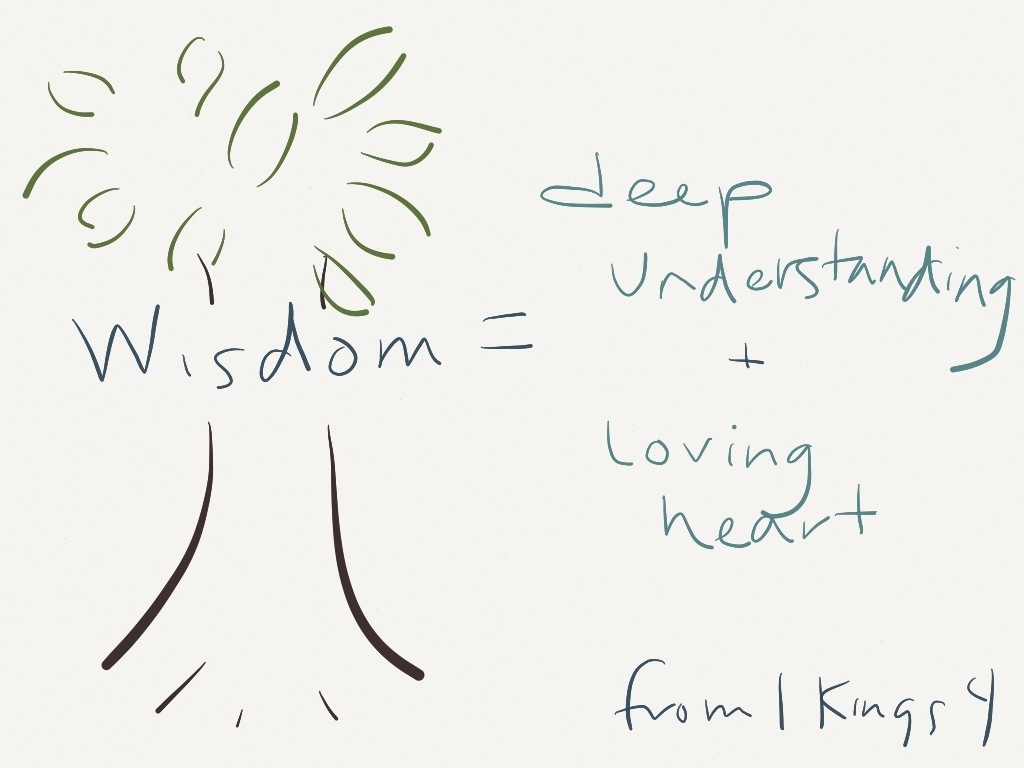 Wisdom =
deep
understanding
+
loving
heart
from 1 Kings 4